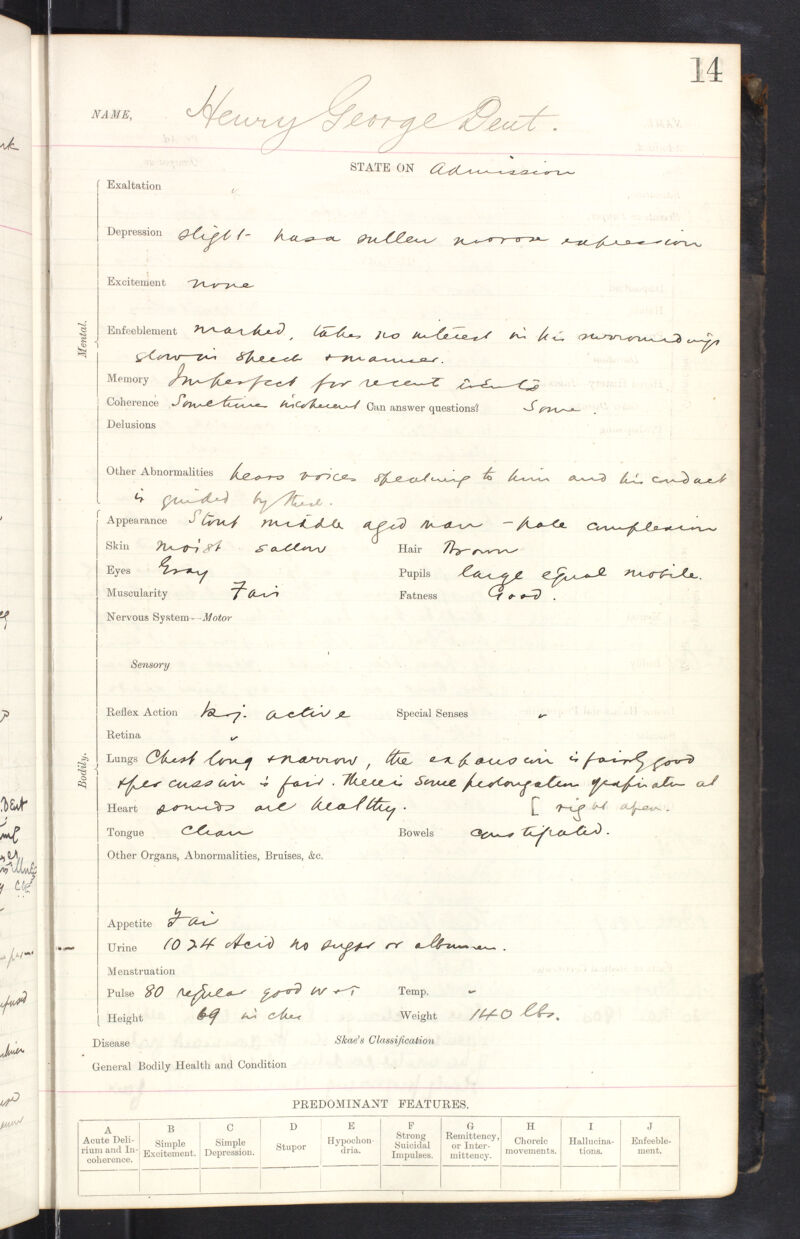 14
NAME, Henry George Dent.
STATE ON Admission
Mental.
Exaltation "
Depression slight - has a sullen morose expression
Excitement none
Enfeeblement marked, takes no interest in his surroundings
slow in speech & manner.
Memory Imperfect for recent events
Coherence Sometimes incoherent Can answer questions? Some.
Delusions
Other Abnormalities hears voices speaking to him and his conduct
is guided by these.
Bodily.
Appearance Stout middle aged man - pale complexion
Skin moist sallow Hair Brown
Eyes Gray Pupils large equal mobile.
Muscularity Fair Fatness Good.
Nervous System—Motor
Sensory
Reflex Action k.j. active Special Senses "
Retina "
Lungs Chest long & narrow, the expansion is fairly good
& percussion is fair. There is some prolongation of expiration at
Heart sounds are healthy. [ right apex.
Tongue Clean Bowels constipated.
Other Organs, Abnormalities, Bruises, &c.
Appetite Fair
Urine 1024 Acid no sugar or albumen.
Menstruation
Pulse 80 regular good v & t Temp. "
Height 69 inches Weight 140 lbs.
Disease Skae's Classification
General Bodily Health and Condition
PREDOMINANT FEATURES.
A B C D E F G H I J
Acute Deli-
rium and In-
coherence.
Simple
Excitement.
Simple
Depression.
Stupor
Hypochon-
dria.
Strong
Suicidal
Impulses.
Remittency,
or Inter-
mittency.
Choreic
movements.
Hallucina-
tions.
Enfeeble-
ment.